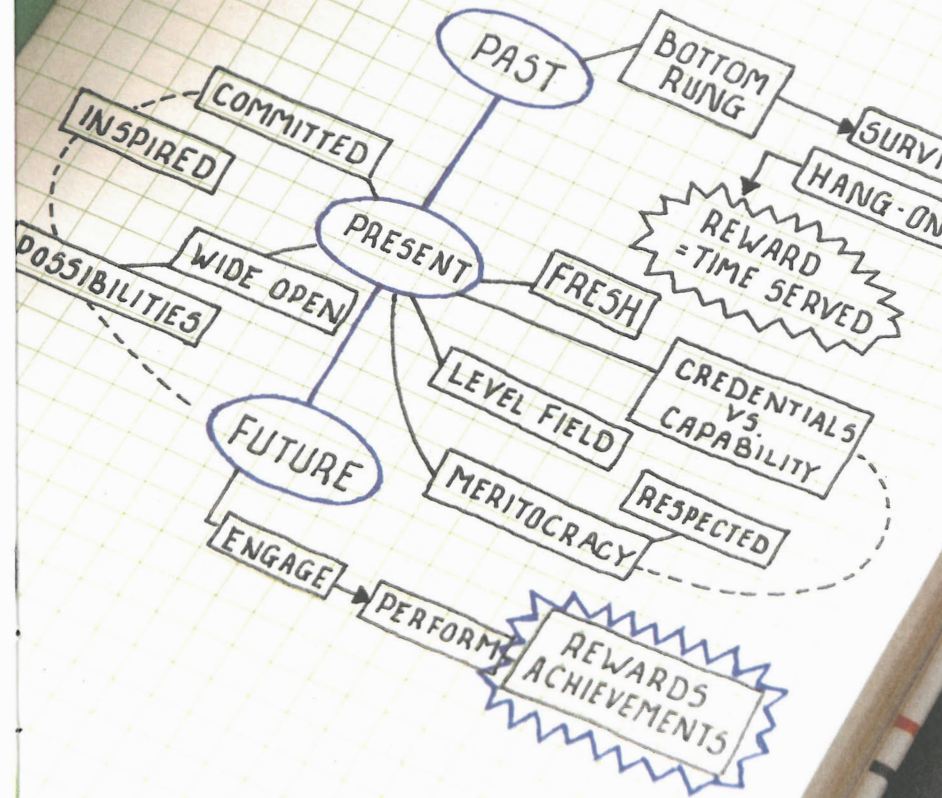 PAST
BOTTOM
RUNG
HANG-ON
REWARD
=TIME SERVED
COMMITTED
INSPIRED
PRESENT
WIDE OPEN
POSSIBILITIES
FRESH
CREDENTIALS
VS.
CAPABILITY
LEVEL FIELD
MERITOCRACY
RESPECTED
FUTURE
ENGAGE
PERFORM
REWARDS
ACHIEVEMENTS